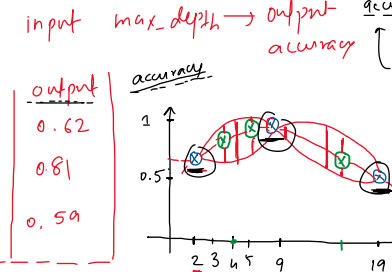 input max_depth → output
accuracy
output
0.62
0.81
0.59
accuracy
1
0.5
2 3 4 5 9 19